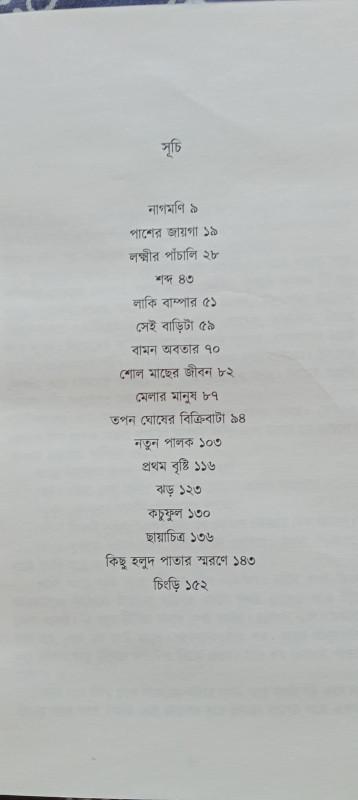 সূচি
নাগমণি ৯
পাশের জায়গা ১৯
লক্ষ্মীর পাঁচালি ২৮
শব্দ ৪৩
লাকি বাম্পার ৫১
সেই বাড়িটা ৫৯
বামন অবতার ৭০
শোল মাছের জীবন ৮২
মেলার মানুষ ৮৭
তপন ঘোষের বিক্রিবাটা ৯৪
নতুন পালক ১০৩
প্রথম বৃষ্টি ১১৬
ঝড় ১২৩
কচুফুল ১৩০
ছায়াচিত্র ১৩৬
কিছু হলুদ পাতার স্মরণে ১৪৩
চিংড়ি ১৫২